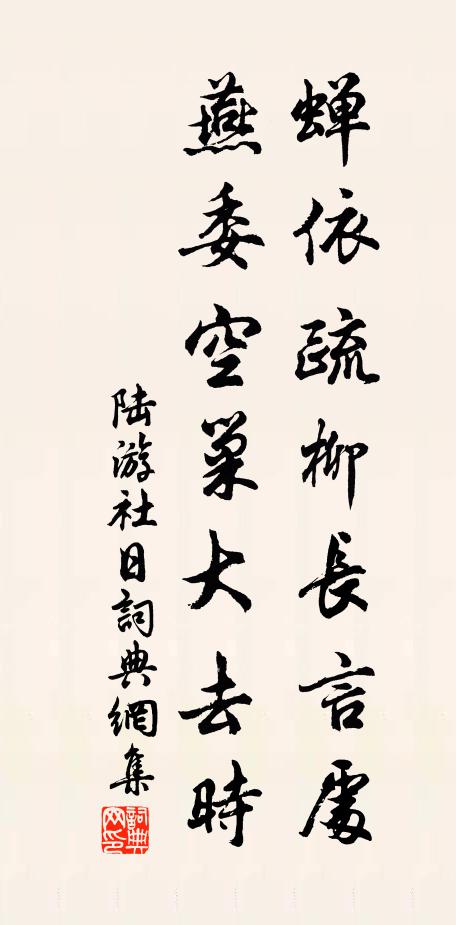 蝉依疏柳長言處
燕委空巢大去時
陆游社日詞典網集
詞典网印